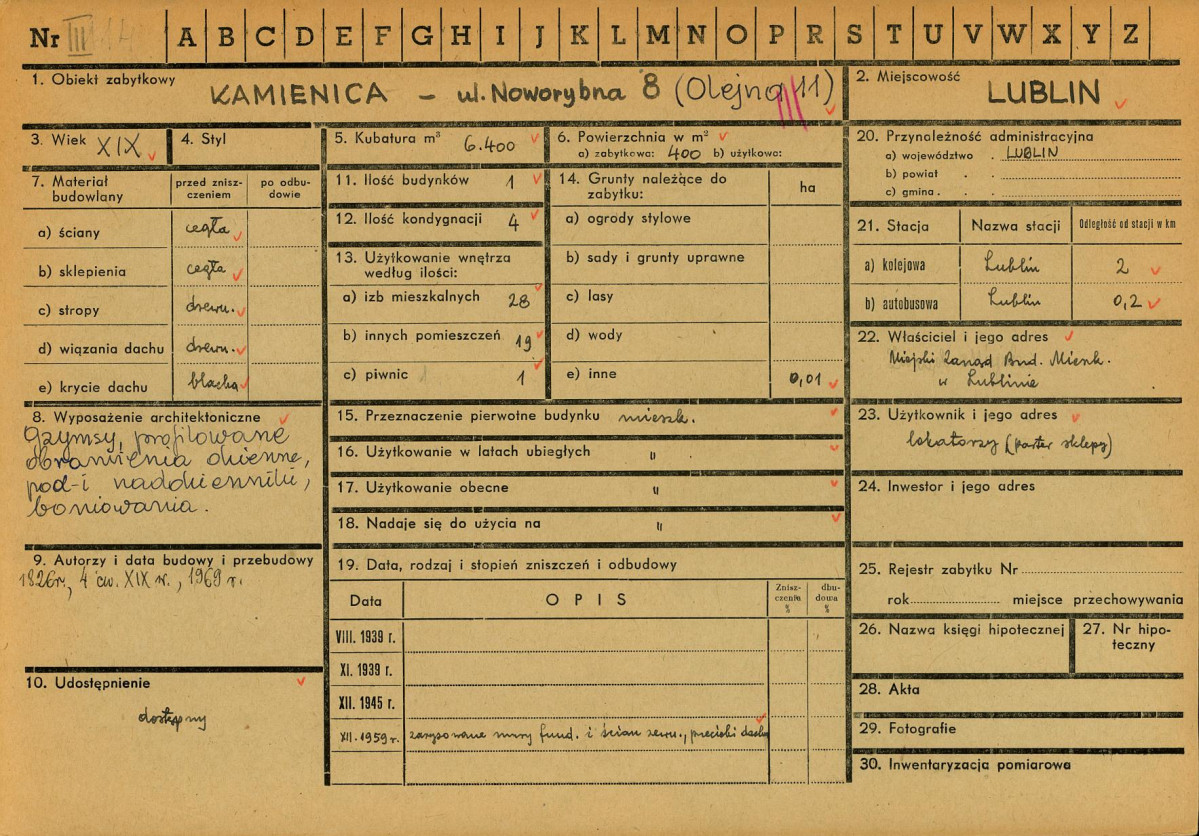 Nr III 14 A B C D E F G H I J K L M N O P R S T U V W X Y Z
1. Obiekt zabytkowy
KAMIENICA – ul. Noworybna 8 (Olejna 11)
2. Miejscowość
LUBLIN
3. Wiek XIX
4. Styl
5. Kubatura m³ 6.400
6. Powierzchnia w m²
a) zabytkowa: 400 b) użytkowa:
7. Materiał budowlany
przed zniszczeniem
po odbudowie
a) ściany cegła
b) sklepienia cegła
c) stropy drewn.
d) wiązania dachu drewn.
e) krycie dachu blacha
8. Wyposażenie architektoniczne
Gzymsy, profilowane
obramienia okienne,
pod-i nadokienniki,
boniowania.
9. Autorzy i data budowy i przebudowy
1826r., 4 ćw. XIX w., 1969 r.
10. Udostępnienie
dostępny
11. Ilość budynków 1
12. Ilość kondygnacji 4
13. Użytkowanie wnętrza
według ilości:
a) izb mieszkalnych 28
b) innych pomieszczeń 19
c) piwnic 1
14. Grunty należące do
zabytku:
ha
a) ogrody stylowe
b) sady i grunty uprawne
c) lasy
d) wody
e) inne 0,01
15. Przeznaczenie pierwotne budynku mieszk.
16. Użytkowanie w latach ubiegłych "
17. Użytkowanie obecne "
18. Nadaje się do użycia na "
19. Data, rodzaj i stopień zniszczeń i odbudowy
Data
OPIS
Zniszczenia %
dbudowa %
VIII. 1939 r.
XI. 1939 r.
XII. 1945 r.
XII. 1959 r. zarysowane mury fund. i ścian zewn., przecieki dachu
20. Przynależność administracyjna
a) województwo . LUBLIN
b) powiat . .
c) gmina . .
21. Stacja
Nazwa stacji
Odległość od stacji w km
a) kolejowa Lublin 2
b) autobusowa Lublin 0,2
22. Właściciel i jego adres
Miejski Zarząd Bud. Mieszk.
w Lublinie
23. Użytkownik i jego adres
lokatorzy (parter sklepy)
24. Inwestor i jego adres
25. Rejestr zabytku Nr
rok miejsce przechowywania
26. Nazwa księgi hipotecznej
27. Nr hipoteczny
28. Akta
29. Fotografie
30. Inwentaryzacja pomiarowa